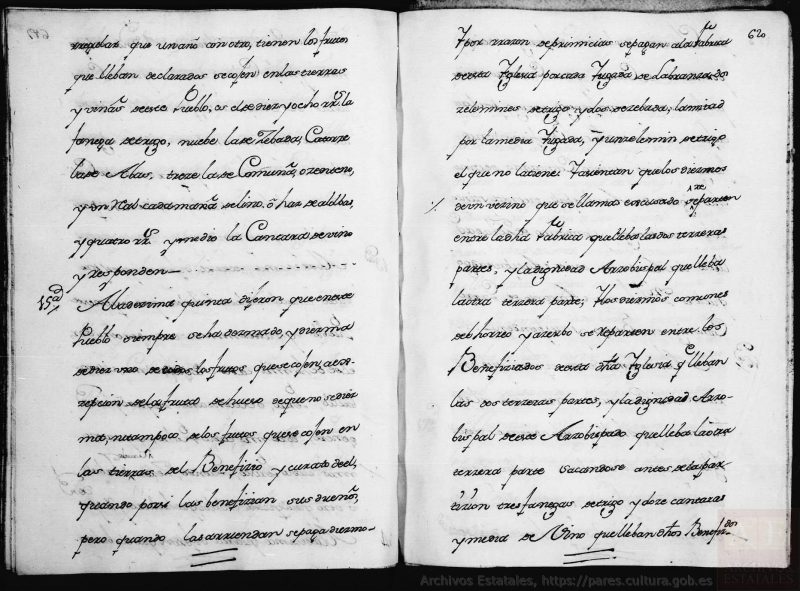 rregular que un año con otro, tienen los frutos
que lleban declarados se cojen en las tierras
y viñas de este Pueblo, es el de diez y ocho rrs. la
fanega de trigo, nuebe la de Zebada, Catorze
la de Abas, treze la de Comuña, o zenteno,
y un Real cada manã de lino, ô haz de alolbas,
y quatro rrs. y medio la Cantara de vino
y responden
15ª A la dezima quinta dijeron que en este
Pueblo siempre se ha dezmado, y diezma
de diez uno de todos los frutos que se cojen, a ex-
zepcion de la fruta de hueso de que no se diez
ma, ni tampoco de los frutos que se cojen en
las tierras del Benefizio y curato de el,
quando por si las benefizian sus dueños,
pero quando las arriendan se paga diezmo
620
Y por rrazon de primicias se pagan a la Fabrica
de esta Yglesia por cada Yugada de Labranza, dos
zelemines de trigo y dos de zebada; la mitad
por la media Yugada, y un zelemin de trigo
el que no la tiene Y asientan que los diezmos
de un vezino que se llama escusado se rreparten
entre la dha Fabrica que lleba las dos terzeras
partes, y la dignidad Arzobispal que lleba
la otra terzera parte; Y los diezmos comunes
de el horreo y azerbo se Reparten entre los
Benefiziados de esta dha Yglesia q lleban
las dos terzeras partes, y la dignidad Arzo-
bispal de este Arzobispado que lleba la otra
terzera parte sacandose antes de la par-
tizion tres fanegas de trigo y doze cantaras
y media de Vino que lleban dhos Benefizdos
Archivos Estatales, https://pares.cultura.gob.es